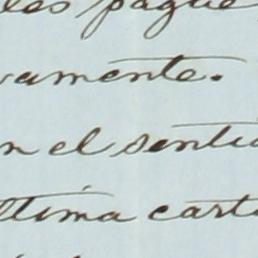 les pague
vamente.
n el sentid
ltima carta